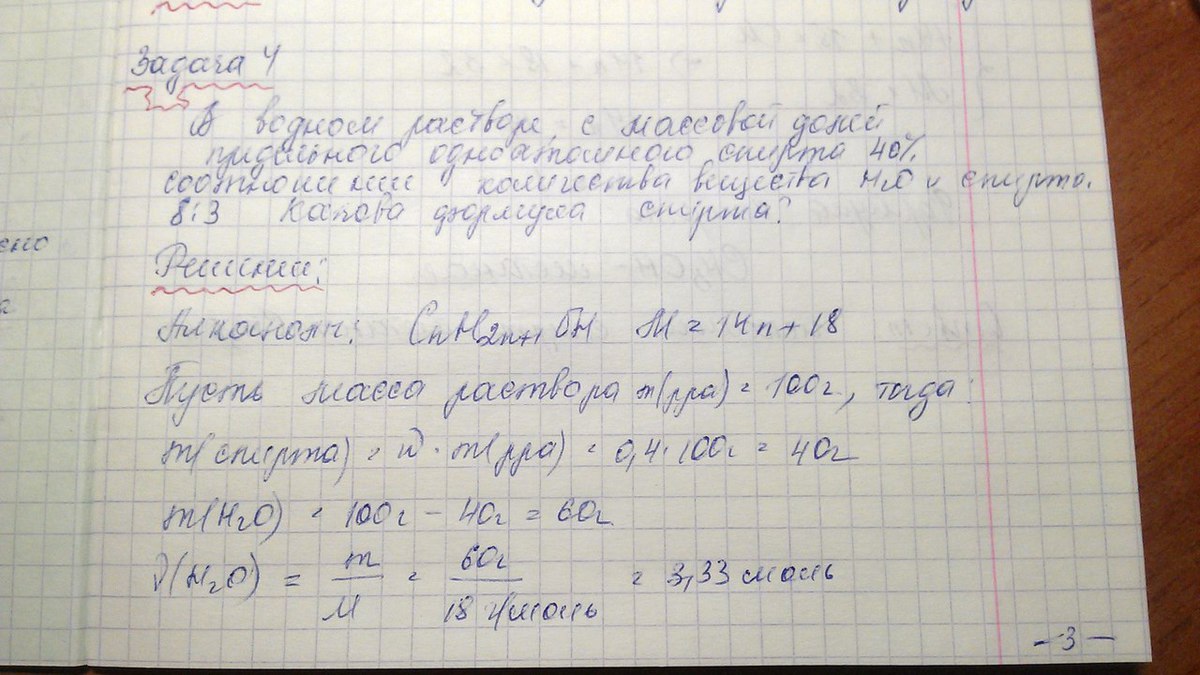 Задача 4
В водном растворе, с массовой долей
придельного одноатомного спирта 40%.
соотношении количества вещества H₂O и спирта.
8:3 Какова формула спирта?
Решении:
Алканоны: CnH2n+1 OH M = 14n + 18
Пусть масса раствора m(рра) = 100г, тогда:
m(спирта) = w · m(рра) = 0,4 · 100г = 40г
m(H₂O) = 100г - 40г = 60г
ν(H₂O) = m/M = 60г/18 г/моль = 3,33 моль
- 3 -